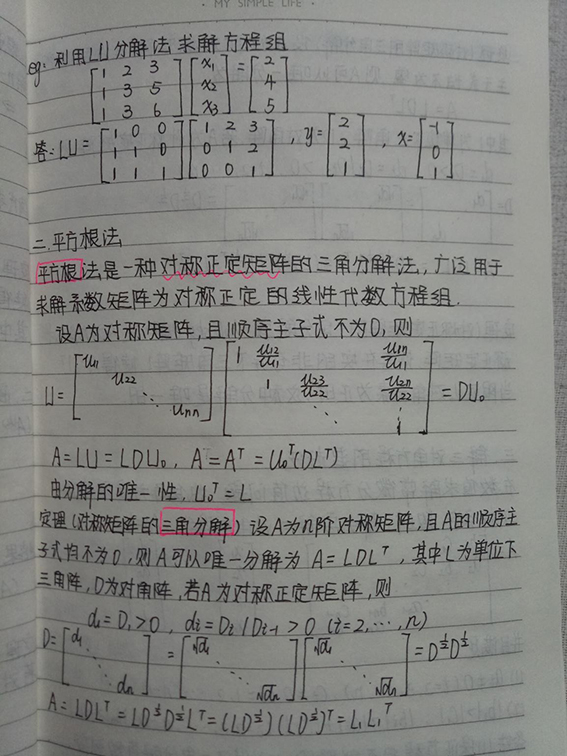 · MY SIMPLE LIFE ·
eg: 利用LU分解法求解方程组
[1 2 3; 1 3 5; 1 3 6] [x₁; x₂; x₃] = [2; 4; 5]
答: LU = [1 0 0; 1 1 0; 1 1 1] [1 2 3; 0 1 2; 0 0 1] , y = [2; 2; 1] , x = [-1; 0; 1]
二.平方根法
平方根法是一种对称正定矩阵的三角分解法，广泛用于
求解系数矩阵为对称正定的线性代数方程组.
设A为对称矩阵，且顺序主子式不为0，则
U = [u₁₁ u₂₂ ⋱ uₙₙ] [1 u₁₂/u₁₁ u₁ₙ/u₁₁; 1 u₂₃/u₂₂ u₂ₙ/u₂₂; ⋱ ⋮; 1] = DU₀
A = LU = LDU₀ , A = Aᵀ = U₀ᵀ(DLᵀ)
由分解的唯一性，U₀ᵀ = L
定理(对称矩阵的三角分解) 设A为n阶对称矩阵，且A的顺序主
子式均不为0，则A可以唯一分解为 A = LDLᵀ，其中L为单位下
三角阵，D为对角阵，若A为对称正定矩阵，则
d₁ = D₁ > 0 , dᵢ = Dᵢ / Dᵢ₋₁ > 0 (i = 2, ⋯, n)
D = [d₁ ⋱ dₙ] = [√d₁ ⋱ √dₙ] [√d₁ ⋱ √dₙ] = D^½ D^½
A = LDLᵀ = LD^½ D^½ Lᵀ = (LD^½)(LD^½)ᵀ = L₁L₁ᵀ